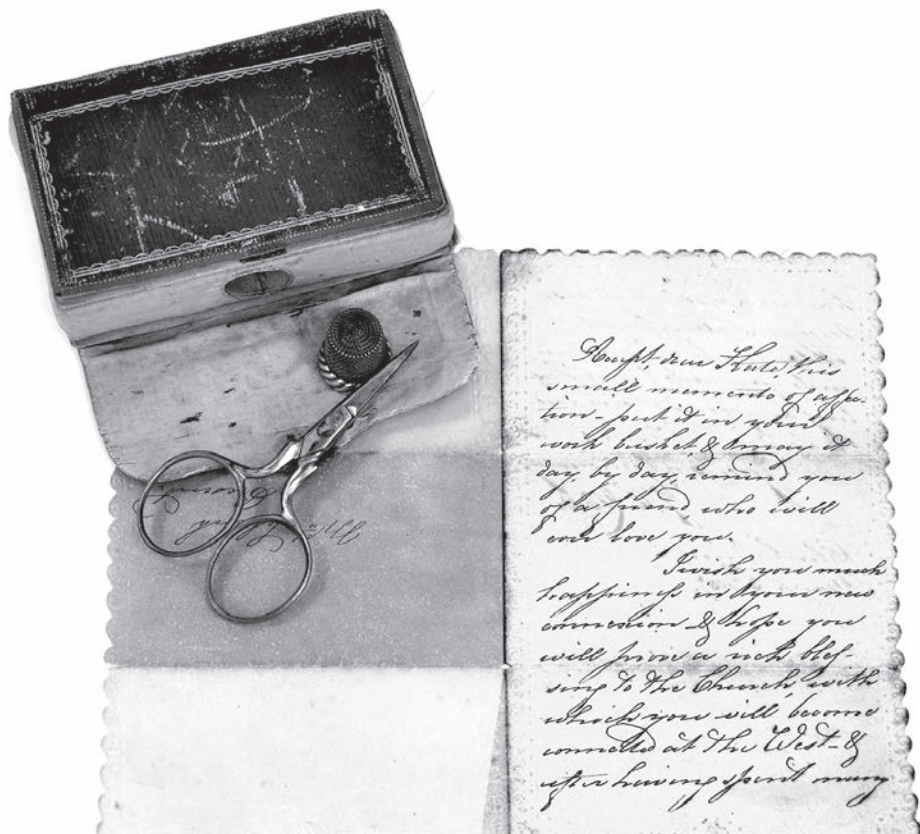 Accept, dear Kate, this
small memento of affec-
tion - put it in your
work basket, & may it
day, by day, remind you
of a friend who will
ever love you.
I wish you much
happiness in your new
connexion & hope you
will prove a rich bles-
sing to the Church, with
which you will become
connected at the West - &
after having spent many